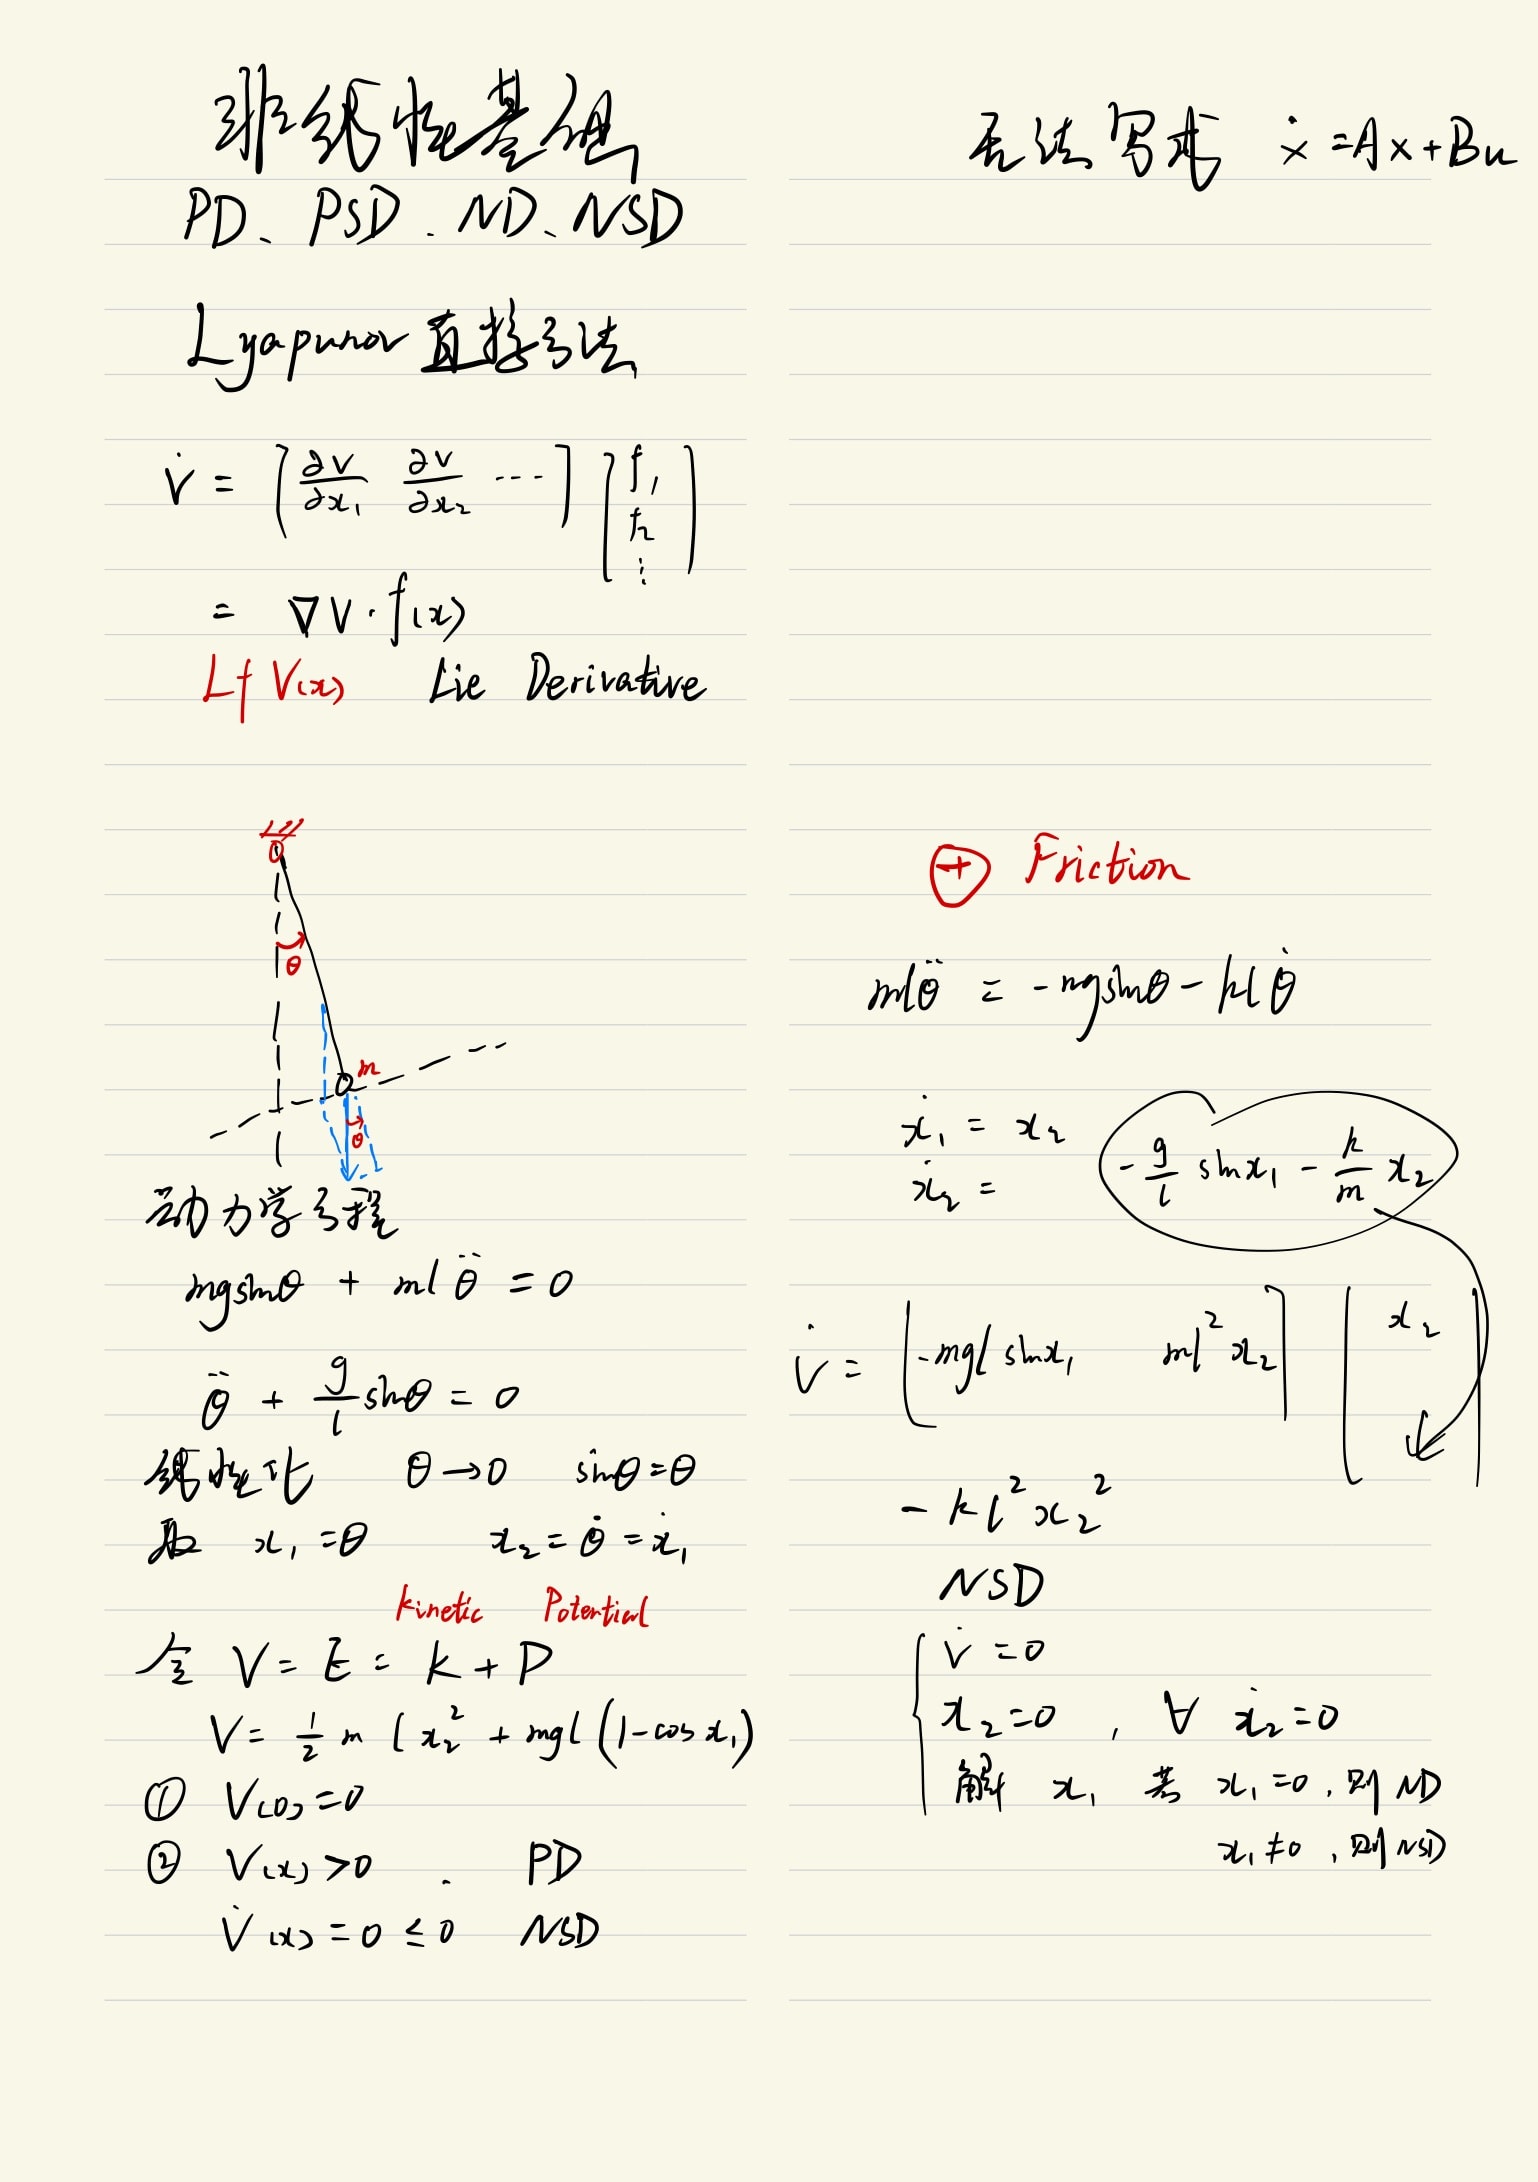 非线性基础
PD、PSD、ND、NSD
Lyapunov 直接方法
V̇ = [∂V/∂x₁ ∂V/∂x₂ ⋯] [f₁ f₂ ⋮]
= ∇V·f(x)
Lf V(x) Lie Derivative
θ
m
θ
动力学方程
mgsinθ + mlθ̈ = 0
θ̈ + g/l sinθ = 0
线性化 θ→0 sinθ=θ
取 x₁=θ x₂=θ̇=ẋ₁
kinetic Potential
令 V = E = K + P
V = 1/2 m l x₂² + mgl (1-cos x₁)
① V(0)=0
② V(x)>0 PD
V̇(x)=0≤0 NSD
无法写成 ẋ=Ax+Bu
⊕ Friction
mlθ̈ = -mgsinθ - klθ̇
ẋ₁ = x₂
ẋ₂ = -g/l sinx₁ - k/m x₂
V̇ = [-mgl sinx₁ ml²x₂] [x₂]
-kl²x₂²
NSD
V̇=0
x₂=0, ∀ ẋ₂=0
解 x₁ 若 x₁=0, 则 ND
x₁≠0, 则 NSD